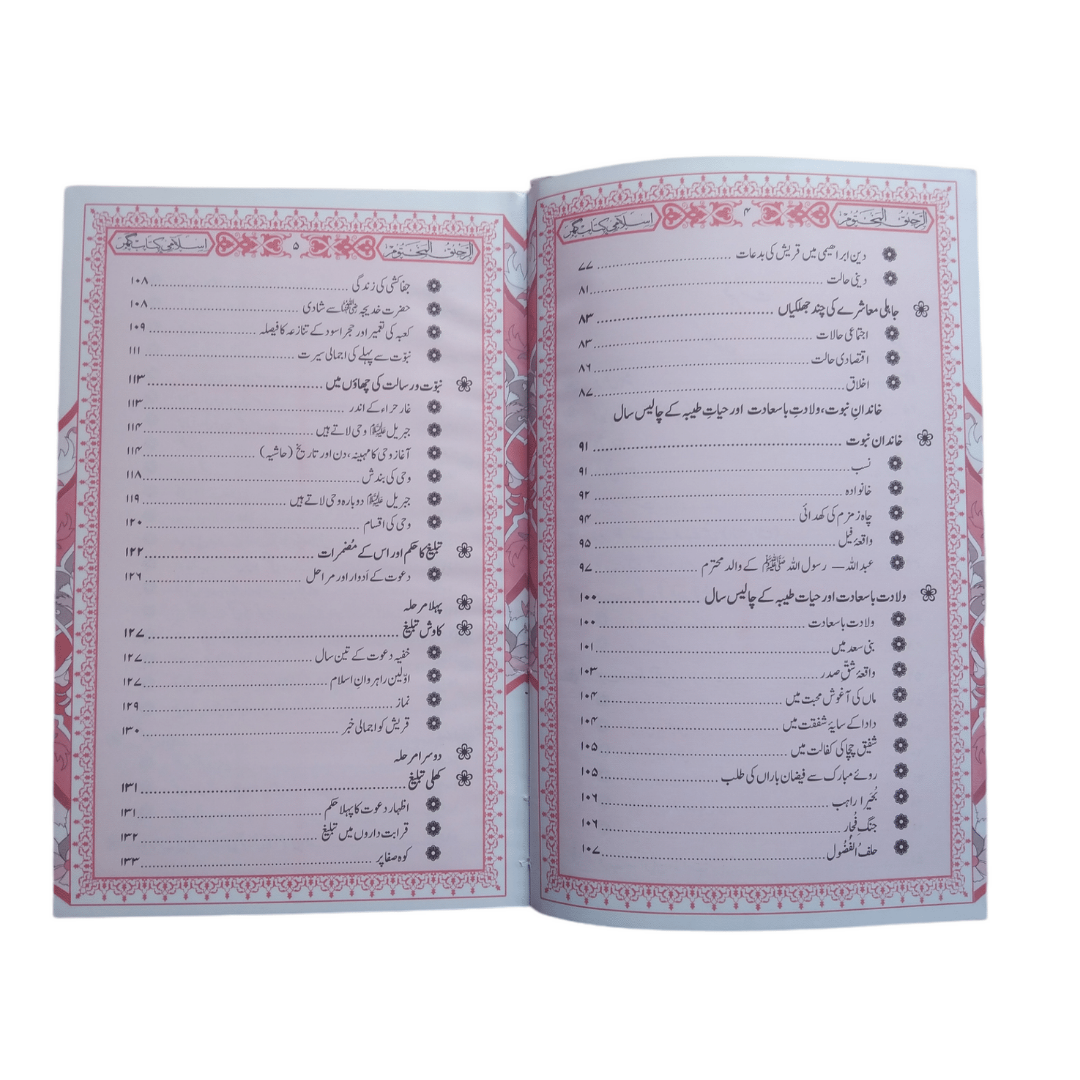 الرحیق المختوم ۴ اسلامی کتاب گھر
دین ابراھیمی میں قریش کی بدعات ۷۷
دینی حالت ۸۱
جاہلی معاشرے کی چند جھلکیاں ۸۳
اجتماعی حالات ۸۳
اقتصادی حالت ۸۶
اخلاق ۸۷
خاندانِ نبوت، ولادتِ باسعادت اور حیاتِ طیبہ کے چالیس سال
خاندان نبوت ۹۱
نسب ۹۱
خانوادہ ۹۲
چاہ زمزم کی کھدائی ۹۴
واقعۂ فیل ۹۵
عبداللہ — رسول اللہ ﷺ کے والد محترم ۹۷
ولادت باسعادت اور حیات طیبہ کے چالیس سال ۱۰۰
ولادت باسعادت ۱۰۰
بنی سعد میں ۱۰۱
واقعۂ شقّ صدر ۱۰۳
ماں کی آغوش محبت میں ۱۰۴
دادا کے سایۂ شفقت میں ۱۰۴
شفیق چچا کی کفالت میں ۱۰۵
روئے مبارک سے فیضان باراں کی طلب ۱۰۵
بُحَیرا راہب ۱۰۶
جنگ فُجار ۱۰۶
حلفُ الفُضُول ۱۰۷
الرحیق المختوم ۵ اسلامی کتاب گھر
جفاکشی کی زندگی ۱۰۸
حضرت خدیجہ رضی اللہ عنہا سے شادی ۱۰۸
کعبہ کی تعمیر اور حجر اسود کے تنازعہ کا فیصلہ ۱۰۹
نبوّت سے پہلے کی اجمالی سیرت ۱۱۱
نبوّت و رسالت کی چھاؤں میں ۱۱۳
غار حراء کے اندر ۱۱۳
جبریل علیہ السلام وحی لاتے ہیں ۱۱۴
آغاز وحی کا مہینہ، دن اور تاریخ (حاشیہ) ۱۱۴
وحی کی بندش ۱۱۸
جبریل علیہ السلام دوبارہ وحی لاتے ہیں ۱۱۹
وحی کی اقسام ۱۲۰
تبلیغ کا حکم اور اس کے مُضمرات ۱۲۲
دعوت کے اَدوار اور مراحل ۱۲۶
پہلا مرحلہ
کاوش تبلیغ ۱۲۷
خفیہ دعوت کے تین سال ۱۲۷
اوّلین راہروانِ اسلام ۱۲۷
نماز ۱۲۹
قریش کو اجمالی خبر ۱۳۰
دوسرا مرحلہ
کھلی تبلیغ ۱۳۱
اظہار دعوت کا پہلا حکم ۱۳۱
قرابت داروں میں تبلیغ ۱۳۲
کوہ صفا پر ۱۳۳